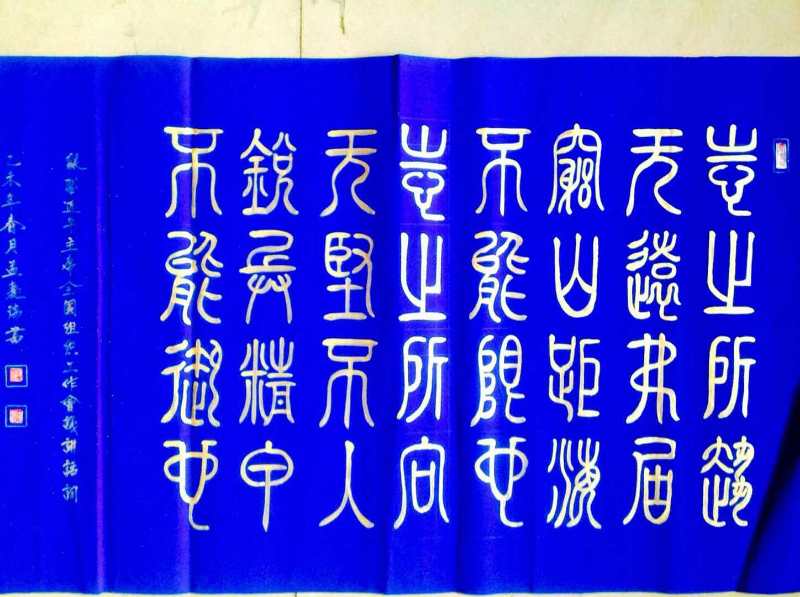 志之所趋
无远弗届
穷山距海
不能限也
志之所向
无坚不入
锐兵精甲
不能御也
敬录近平主席全国组织工作会议讲话词
乙未年春月孟宪瑞书